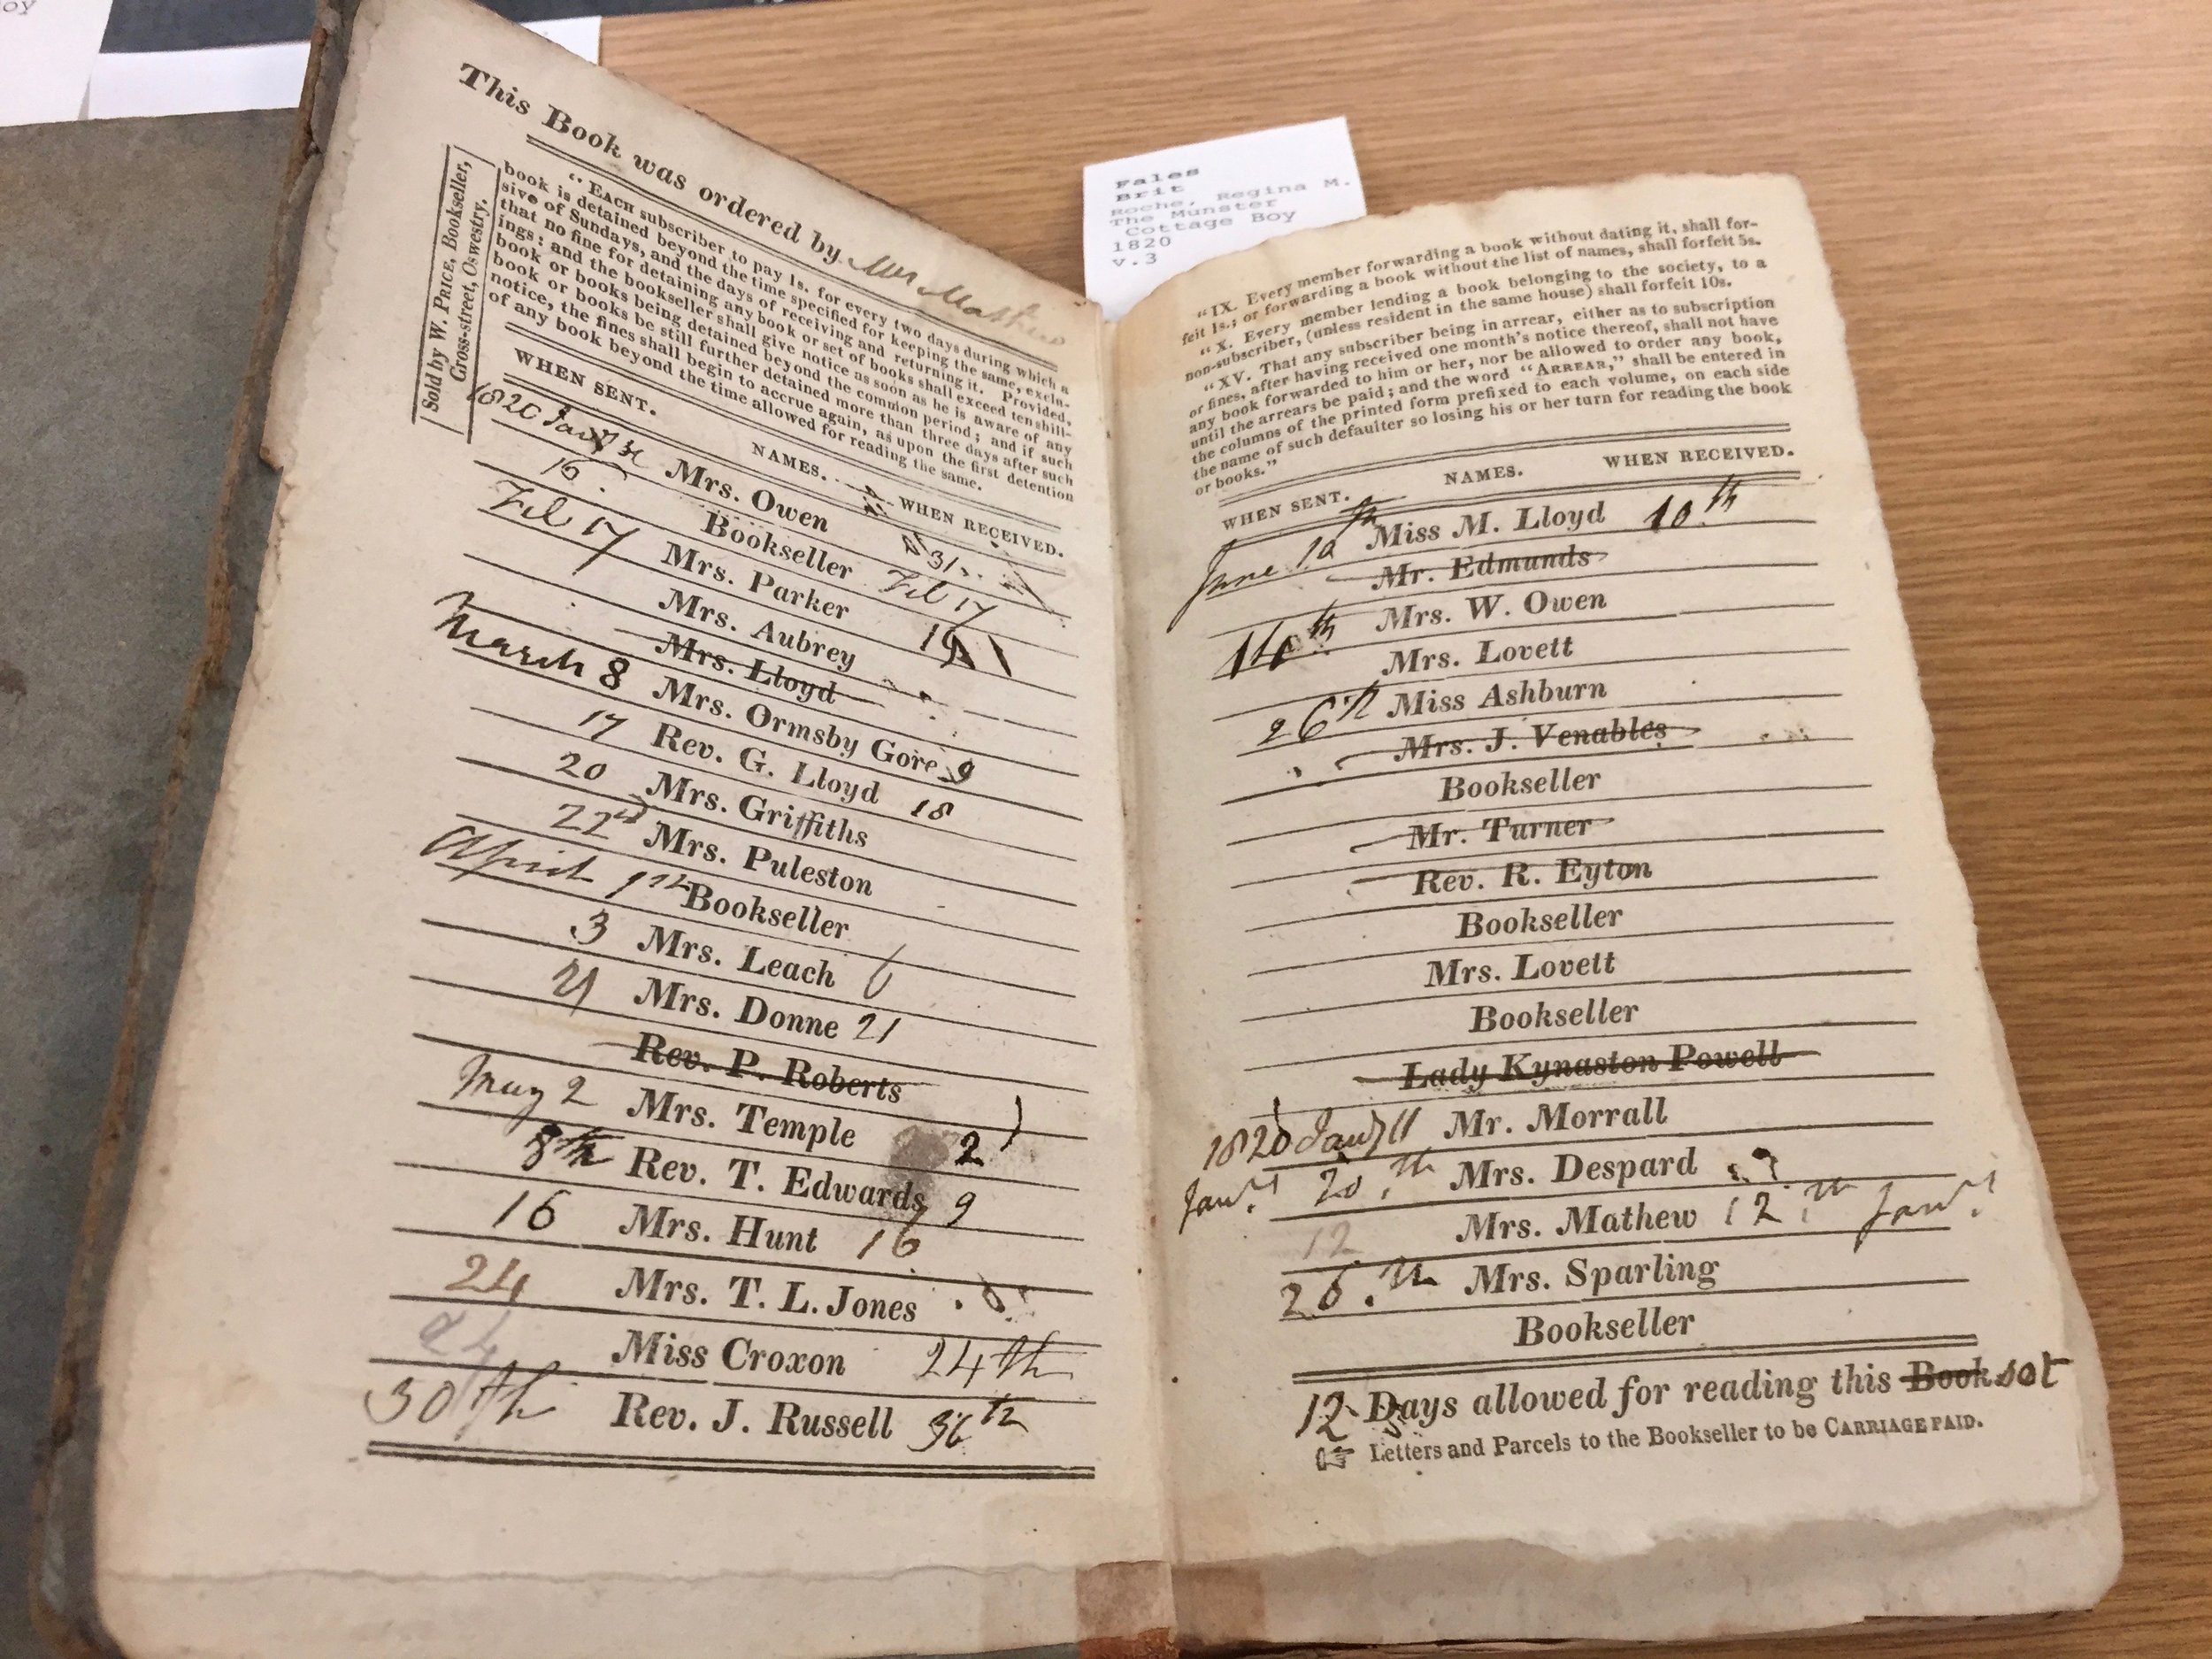 oy
This Book was ordered by Mrs Mathew
Sold by W. PRICE, Bookseller,
Cross-street, Oswestry.
"EACH subscriber to pay 1s. for every two days during which a
book is detained beyond the time specified for keeping the same, exclu-
sive of Sundays, and the days of receiving and returning it. Provided,
that no fine for detaining any book or set of books shall exceed ten shill-
ings: and the bookseller shall give notice as soon as he is aware of any
book or books being detained beyond the common period; and if such
book or books be still further detained more than three days after such
notice, the fines shall begin to accrue again, as upon the first detention
of any book beyond the time allowed for reading the same.
WHEN SENT. NAMES. WHEN RECEIVED.
1820 Jany Mrs. Owen 31
Bookseller Feb 17
Feb 17 Mrs. Parker
Mrs. Aubrey
Mrs. Lloyd
March 8 Mrs. Ormsby Gore 9
17 Rev. G. Lloyd 18
20 Mrs. Griffiths
22nd Mrs. Puleston
April Bookseller
3 Mrs. Leach 6
21 Mrs. Donne 21
Rev. P. Roberts
May 2 Mrs. Temple 2
8th Rev. T. Edwards 9
16 Mrs. Hunt 16
24 Mrs. T. L. Jones
24 Miss Croxon 24th
30th Rev. J. Russell
Fales
Brit
Roche, Regina M.
The Munster
Cottage Boy
1820
v.3
"IX. Every member forwarding a book without dating it, shall for-
feit 1s.; or forwarding a book without the list of names, shall forfeit 5s.
"X. Every member lending a book belonging to the society, to a
non-subscriber, (unless resident in the same house) shall forfeit 10s.
"XV. That any subscriber being in arrear, either as to subscription
or fines, after having received one month's notice thereof, shall not have
any book forwarded to him or her, nor be allowed to order any book,
until the arrears be paid; and the word "ARREAR," shall be entered in
the columns of the printed form prefixed to each volume, on each side
the name of such defaulter so losing his or her turn for reading the book
or books."
WHEN SENT. NAMES. WHEN RECEIVED.
June 10th Miss M. Lloyd 10th
Mr. Edmunds
Mrs. W. Owen
Mrs. Lovett
26th Miss Ashburn
Mrs. J. Venables
Bookseller
Mr. Turner
Rev. R. Eyton
Bookseller
Mrs. Lovett
Bookseller
Lady Kynaston Powell
1820 Jany 11 Mr. Morrall
Jany 20th Mrs. Despard
12 Mrs. Mathew 12th Jany
26th Mrs. Sparling
Bookseller
12 Days allowed for reading this Book set
☞ Letters and Parcels to the Bookseller to be CARRIAGE PAID.